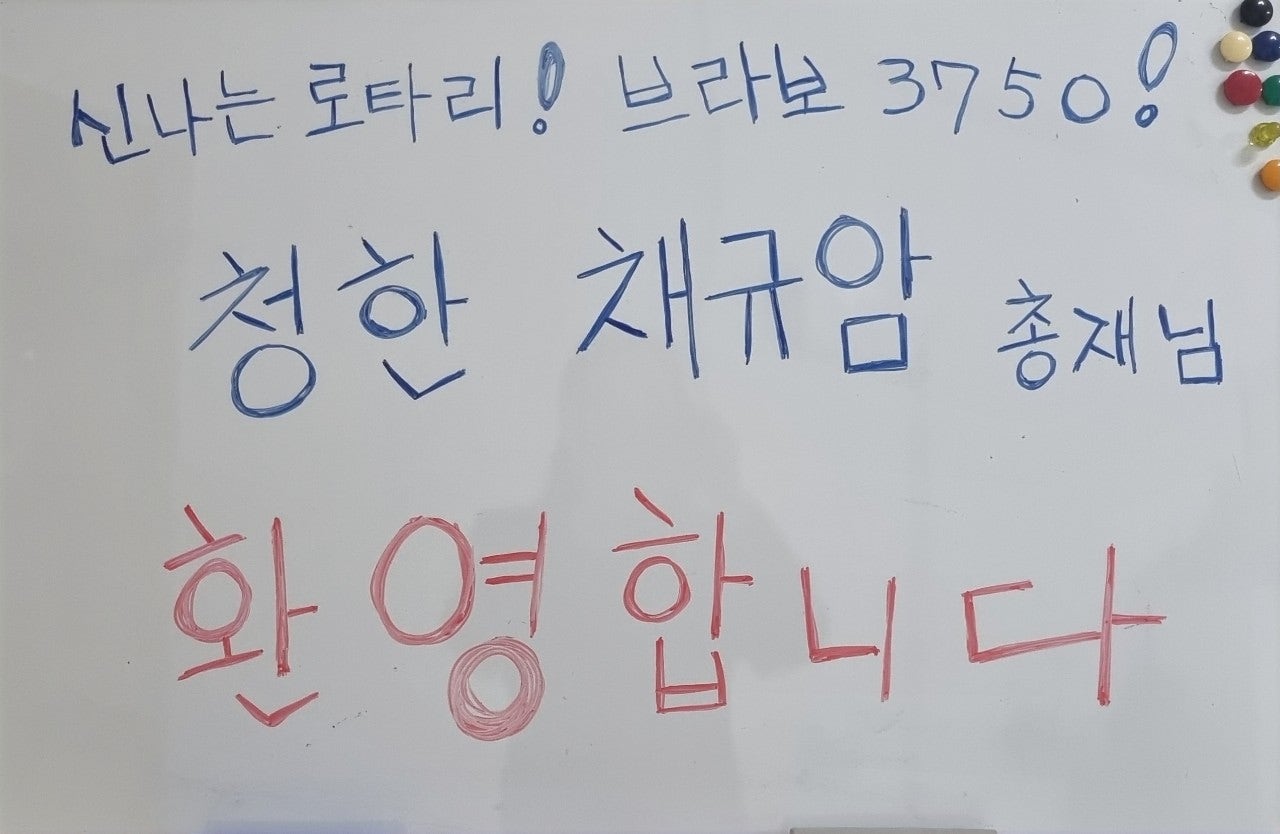 신나는 로타리! 브라보 3750!
청한 채규암 총재님
환영합니다